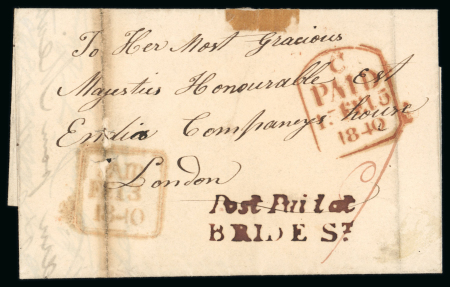 To Her Most Gracious
Majesties Honourable Est
Endia Companeys house
London
C
PAID
FE 15
1840
PAID
FE 15
1840
Post Paid at
BRIDE St